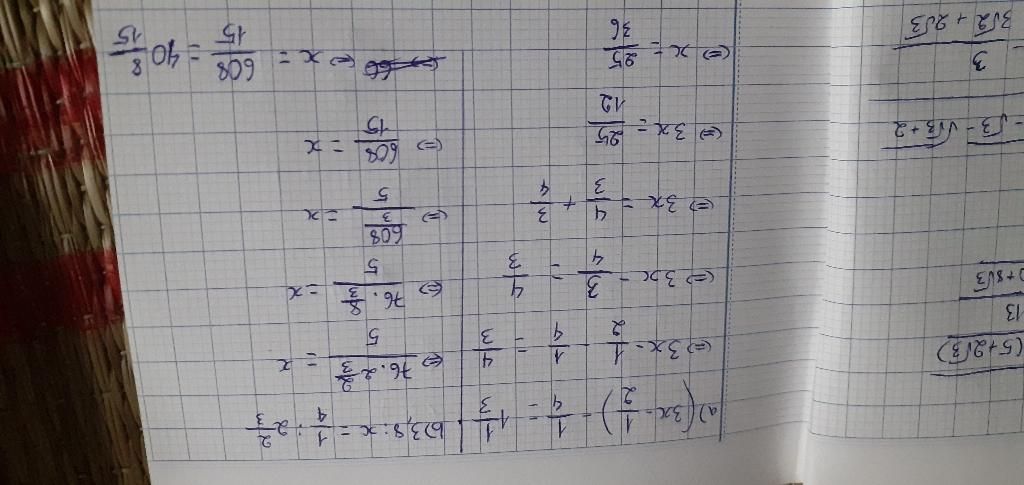 (5+2√3)
13
)+8√3
- √3 - √√3+2
3
3√2+2√3
a) (3x - 1/2) - 1/4 = 1 1/3
⇔ 3x - 1/2 - 1/4 = 4/3
⇔ 3x - 3/4 = 4/3
⇔ 3x = 4/3 + 3/4
⇔ 3x = 25/12
⇔ x = 25/36
b) 3,8 : x = 1/4 : 2 2/3
⇔ (76 . 2 2/3)/5 = x
⇔ (76 . 8/3)/5 = x
⇔ (608/3)/5 = x
⇔ 608/15 = x
⇔ x = 608/15 = 40 8/15